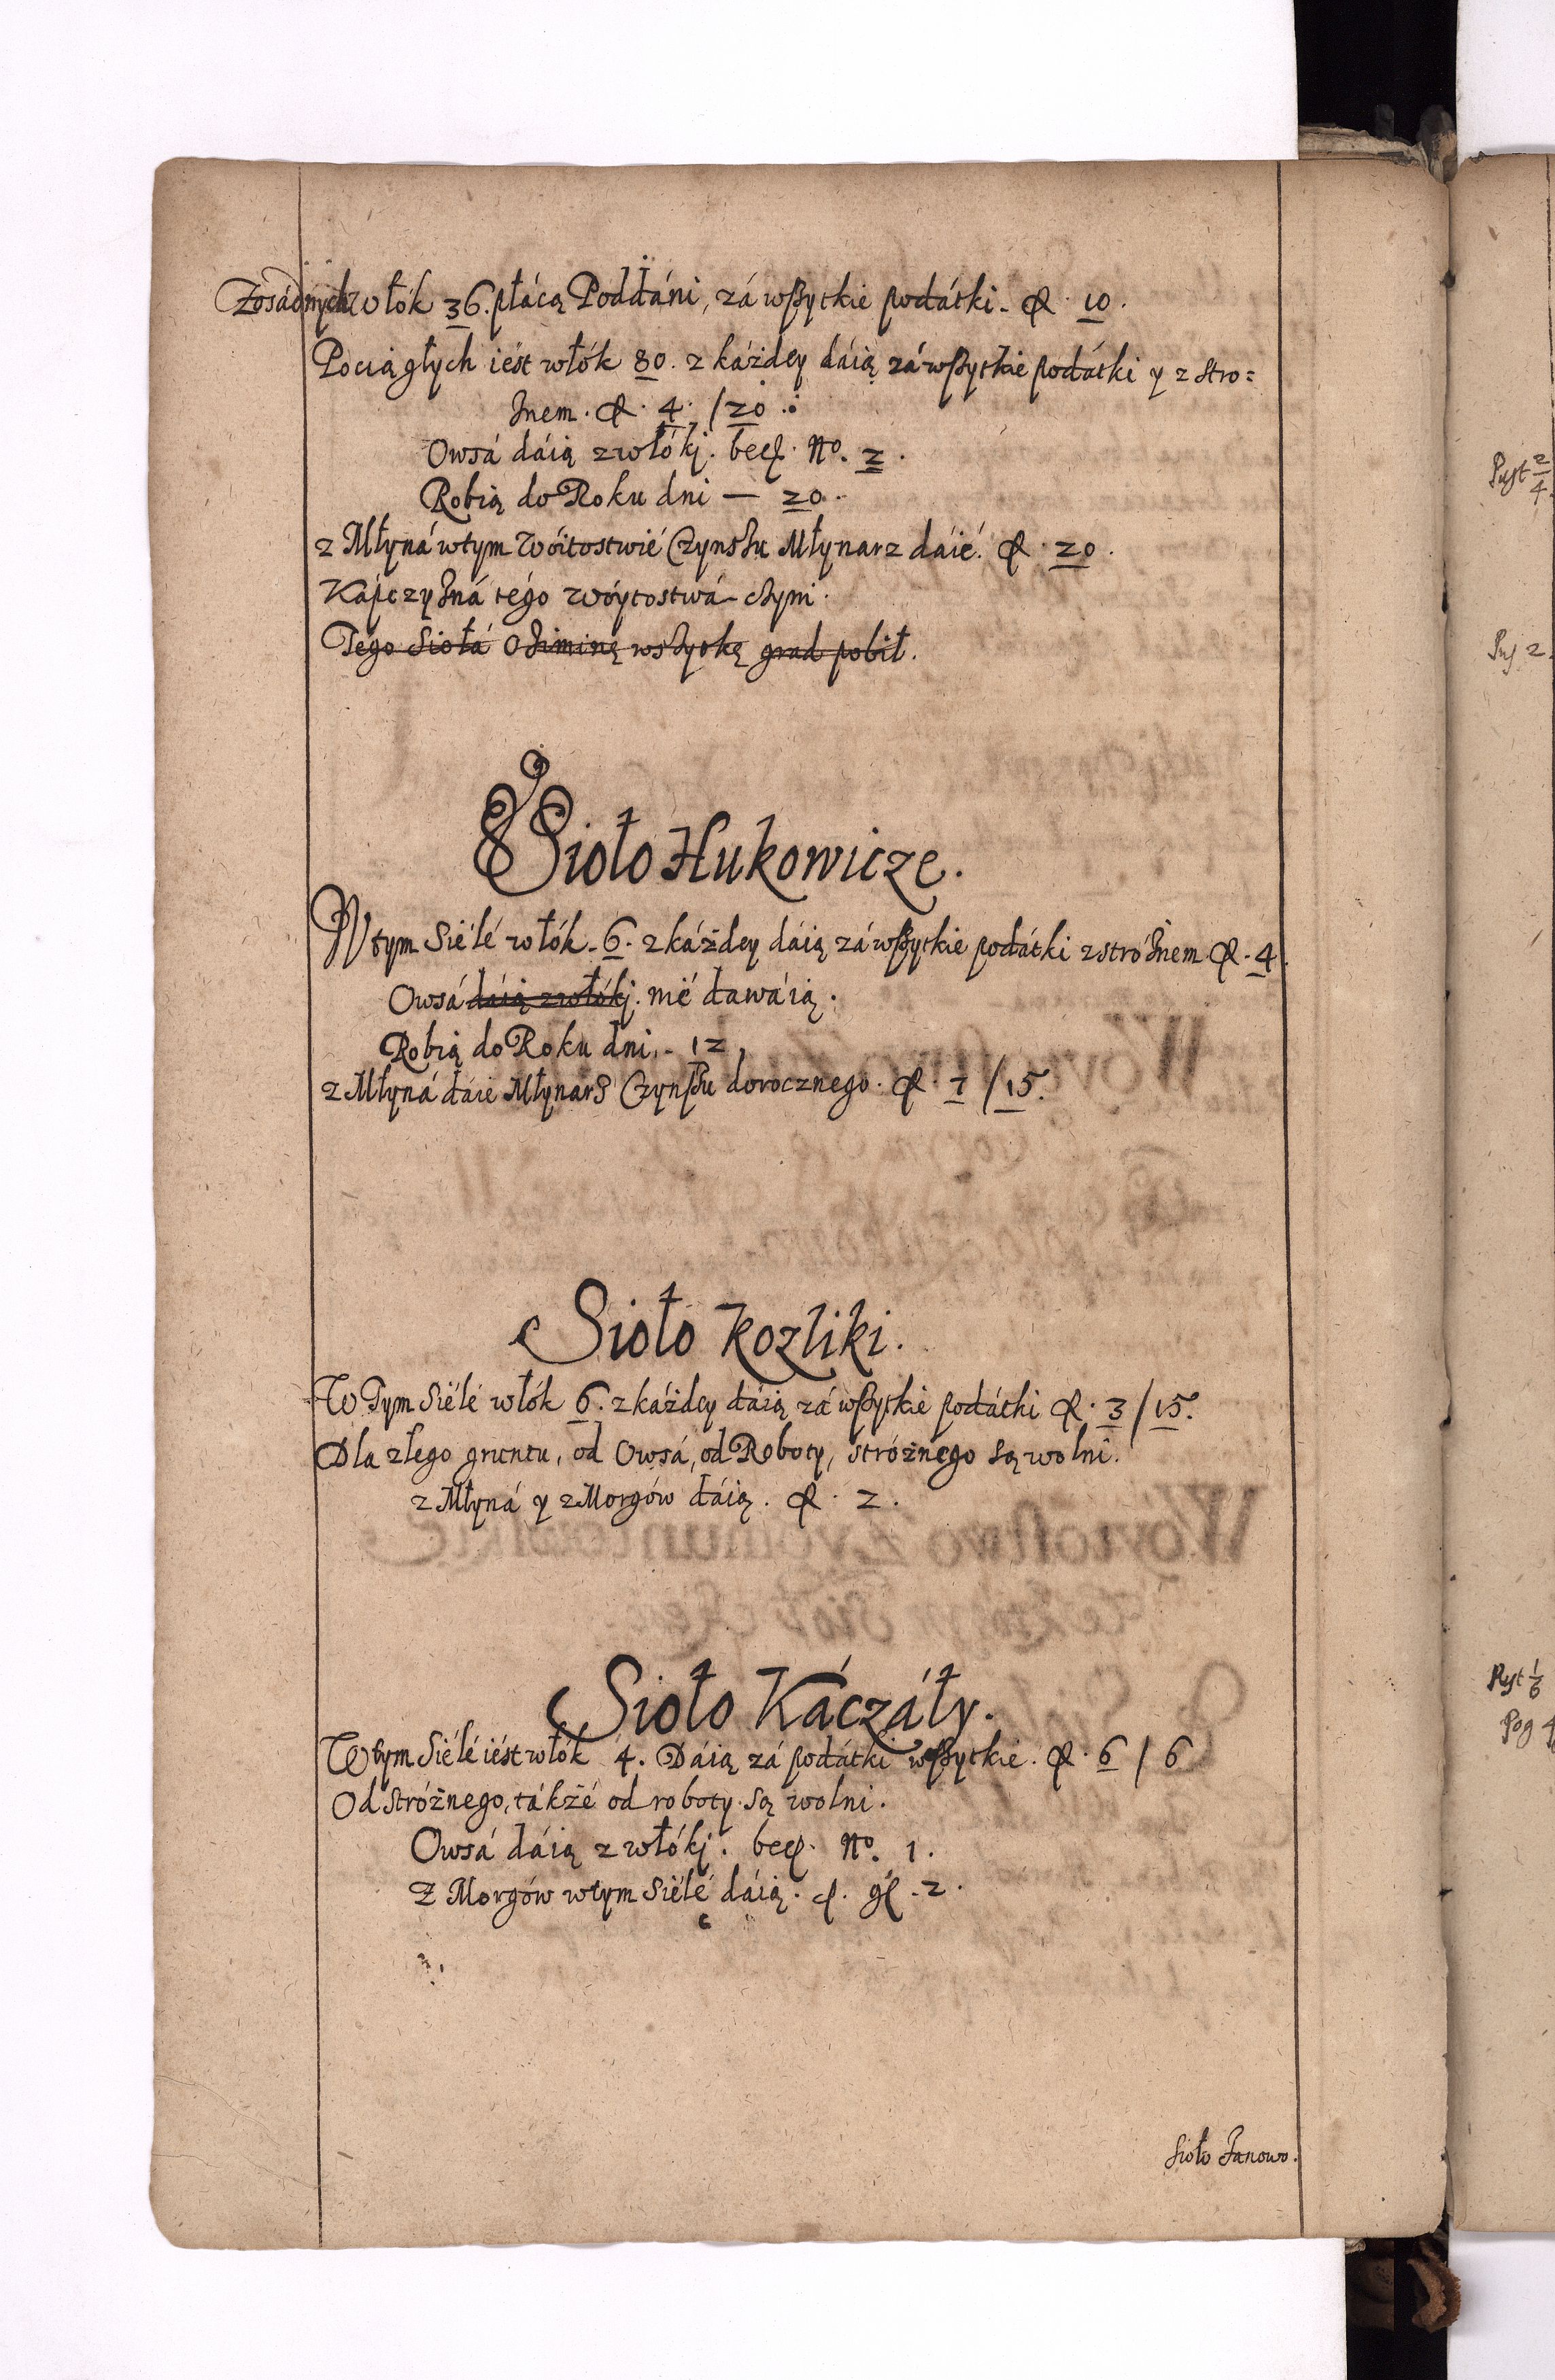 Zosádnych włók 36. płácą Poddáni, zá wßytkie podátki. fl. 10.
Pociągłych iést włók 80. z káżdey dáią zá wßytkie podátki y z stro=
żnem. fl. 4. / 20.
Owsá dáią z włókj. becz. No. 2.
Robią do Roku dni — 20.
z Młyná w tym Wóitostwié Czynszu Młynarz dáié. fl. 20.
Kápczyzná tégo Wóytostwá
Tego Siołá Oziminę wszytkę grad pobił.
Sioło Hukowicze.
W tym Siélé włók. 6. z káżdey dáią zá wßytkie podátki z stróżnem fl. 4.
Owsá dáią z włókj. nié dawáią.
Robią do Roku dni. 12.
z Młyná dáie Młynarz Czynßu dorocznego. fl. 7 / 15.
Sioło Kozliki.
W Tym Siélé włók 6. z káżdey dáią zá wßytkié podátki fl. 3 / 15.
Dla złego gruntu, od Owsá, od Roboty, stróżnego są wolni.
z Młyná y z Morgów dáią. fl. 2.
Sioło Káczáły.
W tym Siélé iést włók 4. Dáią zá podátki wßytkie. fl. 6 / 6
Od stróżnego, tákże od roboty są wolni.
Owsá dáią z włókj. becz. No. 1.
Z Morgów w tym Siélé dáią. gł. 2.
Sioło Janowo.
Pust 2/4.
Pus 2.
Pust 1/6
Pog 4